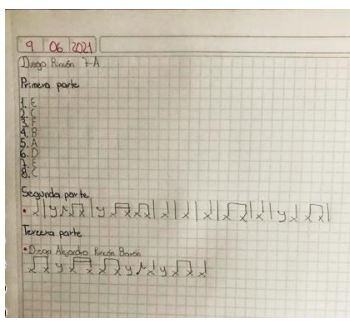 9 06 2021
Diego Rincón 7-A
Primera parte
1. E
2. C
3. F
4. B
5. A
6. D
7. E
8. C
Segunda parte
Tercera parte
• Diego Alejandro Rincón Barón